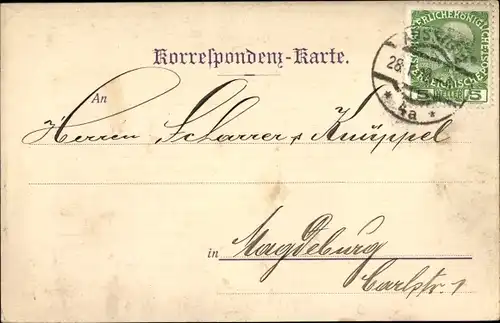 Korrespondenz-Karte.
KAISERLICHE KÖNIGLICHE
ÖSTERREICHISCHE POST
5 HELLER 5
28.
* 4a *
An
Herren Scharrer & Knüppel
in Magdeburg
Carlstr. 1